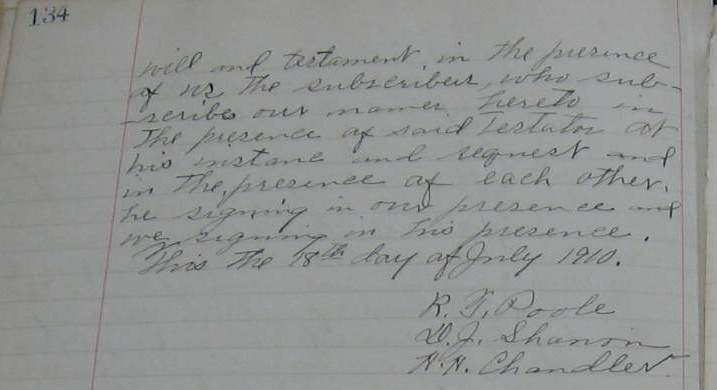 134
will and testament, in the presence
of us the subscribers, who sub-
scribe our names hereto in
the presence of said Testator at
his instance and request and
in the presence of each other,
he signing in our presence and
we signing in his presence.
This the 18th day of July 1910.
R. F. Poole
D. J. Shanon
H. H. Chandler